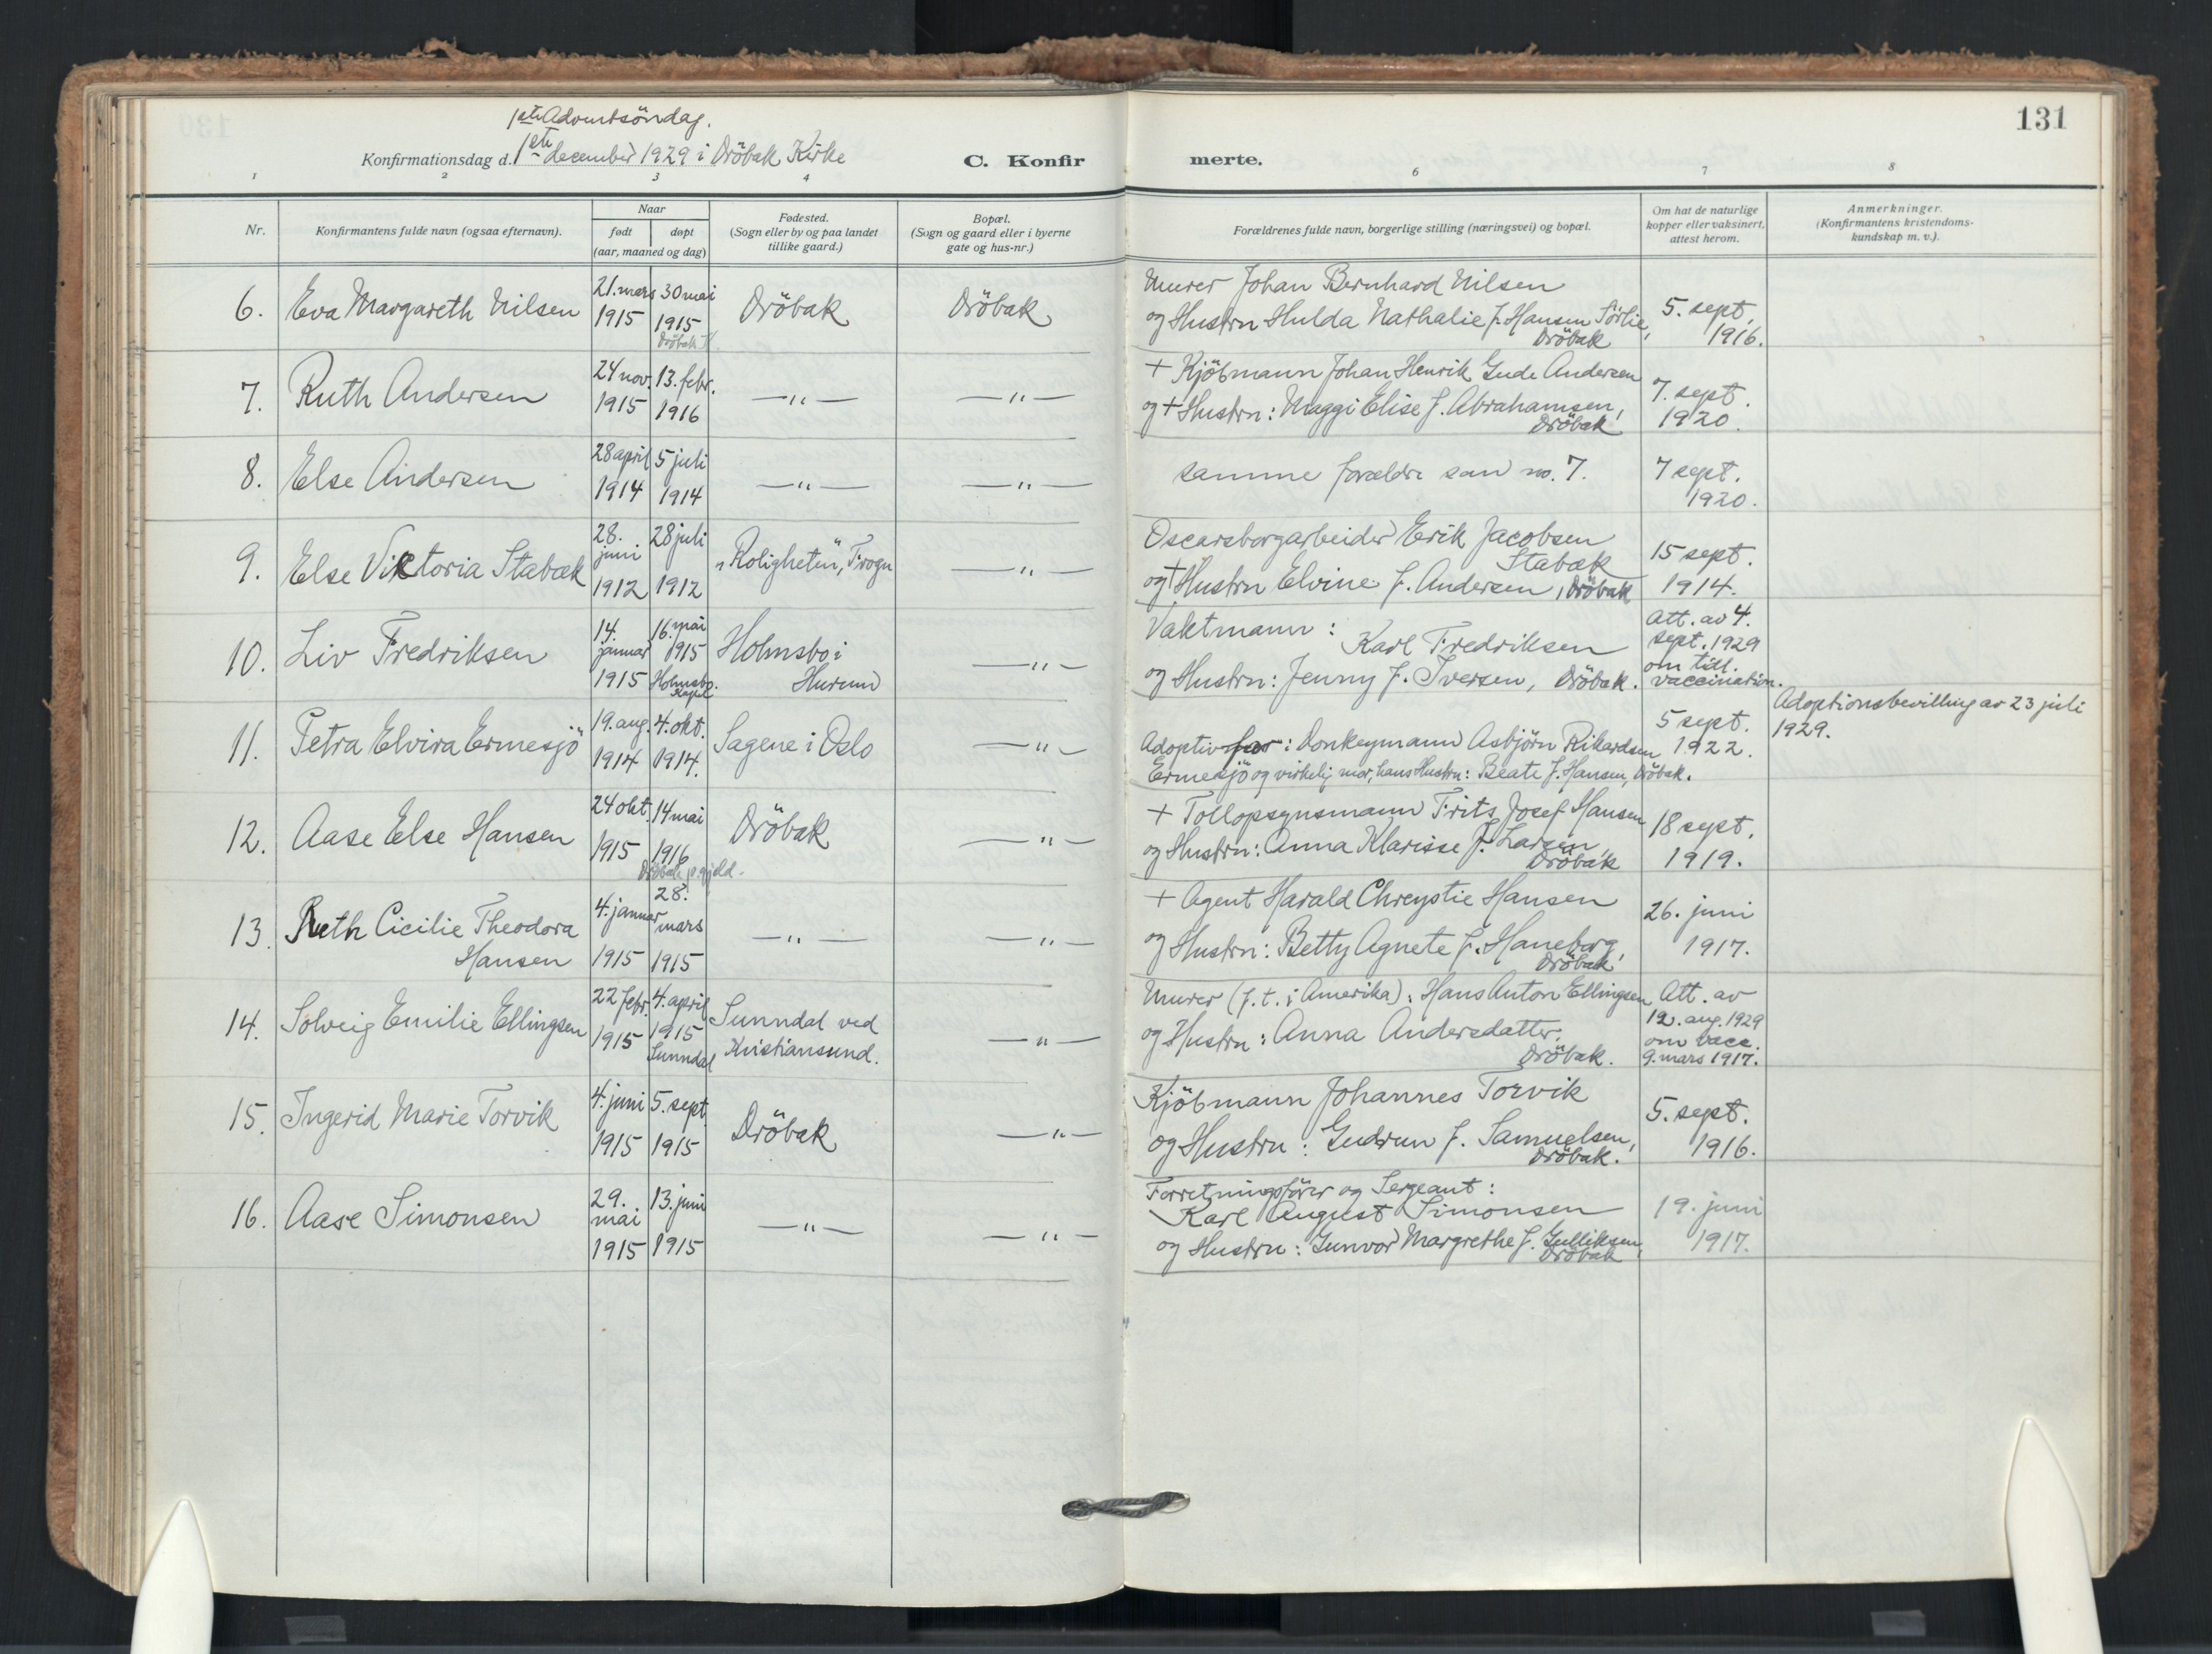 131
1ste Adventsöndag.
Konfirmationsdag d. 1ste december 1929 i Dröbak Kirke
C. Konfir merte.
1 2 3 4 6 7 8
Nr.
Konfirmantens fulde navn (ogsaa efternavn).
Naar
født døpt
(aar, maaned og dag)
Fødested.
(Sogn eller by og paa landet
tillike gaard.)
Bopæl.
(Sogn og gaard eller i byerne
gate og hus-nr.)
Forældrenes fulde navn, borgerlige stilling (næringsvei) og bopæl.
Om hat de naturlige
kopper eller vaksinert,
attest herom.
Anmerkninger.
(Konfirmantens kristendoms-
kundskap m. v.).
6. Eva Margareth Nilsen
21. mars 1915
30 mai 1915
Dröbak
Dröbak
Dröbak
Murer Johan Bernhard Nilsen
og Hustru Hulda Nathalie f. Hansen Sörlie,
Dröbak
5. sept.
1916.
7. Ruth Andersen
24 nov. 1915
13. febr. 1916
—"—
—"—
+ Kjöbmann Johan Henrik Gude Andersen
og + Hustru: Maggi Elise f. Abrahamsen,
Dröbak
7. sept.
1920.
8. Else Andersen
28 april 1914
5 juli 1914
—"—
—"—
samme forældre som no. 7.
7 sept.
1920.
9. Else Viktoria Stabæk
28. juni 1912
28 juli 1912
"Roligheten", Frogn
—"—
Oscarsborgarbeider Erik Jacobsen
Stabæk
og + Hustru Elvine f. Andersen, Dröbak
15 sept.
1914.
10. Liv Fredriksen
14. januar 1915
16. mai 1915
Holmsbo. Kapel
Holmsbo i
Hurum
—"—
Vaktmann:
Karl Fredriksen
og Hustru: Jenny f. Iversen, Dröbak.
Att. av 4.
sept. 1929
om tidl.
vaccination.
11. Petra Elvira Ermesjö
19. aug. 1914
4. okt. 1914.
Sagene i Oslo
—"—
Adoptivfar: Donkeymann Asbjörn Rikardsen
Ermesjö og virkelig mor, hans Hustru: Beate f. Hansen, Dröbak.
5 sept.
1922.
Adoptionsbevilling av 23 juli
1929.
12. Aase Else Hansen
24 okt. 1915
14 mai 1916
Dröbak p.gjeld.
Dröbak
—"—
+ Tollopsynsmann Frits Josef Hansen
og Hustru: Anna Klarisse f. Larsen,
Dröbak
18 sept.
1919.
13. Ruth Cicilie Theodora
Hansen
4. januar 1915
28. mars 1915
—"—
—"—
+ Agent Harald Chreystie Hansen
og Hustru: Betty Agnete f. Haneborg,
Dröbak
26. juni
1917.
14. Solveig Emilie Ellingsen
22 febr. 1915
4. april 1915
Sunndal
Sunndal ved
Kristiansund.
—"—
Murer (f. t. i Amerika): Hans Anton Ellingsen
og Hustru: Anna Andersdatter,
Dröbak.
Att. av
12. aug. 1929
om vacc.
9. mars 1917.
15. Ingerid Marie Torvik
4. juni 1915
5. sept. 1915
Dröbak
—"—
Kjöbmann Johannes Torvik
og Hustru: Gudrun f. Samuelsen,
Dröbak.
5. sept.
1916.
16. Aase Simonsen
29. mai 1915
13. juni 1915
—"—
—"—
Forretningsförer og Sergeant:
Karl August Simonsen
og Hustru: Gunvor Margrethe f. Gulliksen,
Dröbak
19. juni
1917.